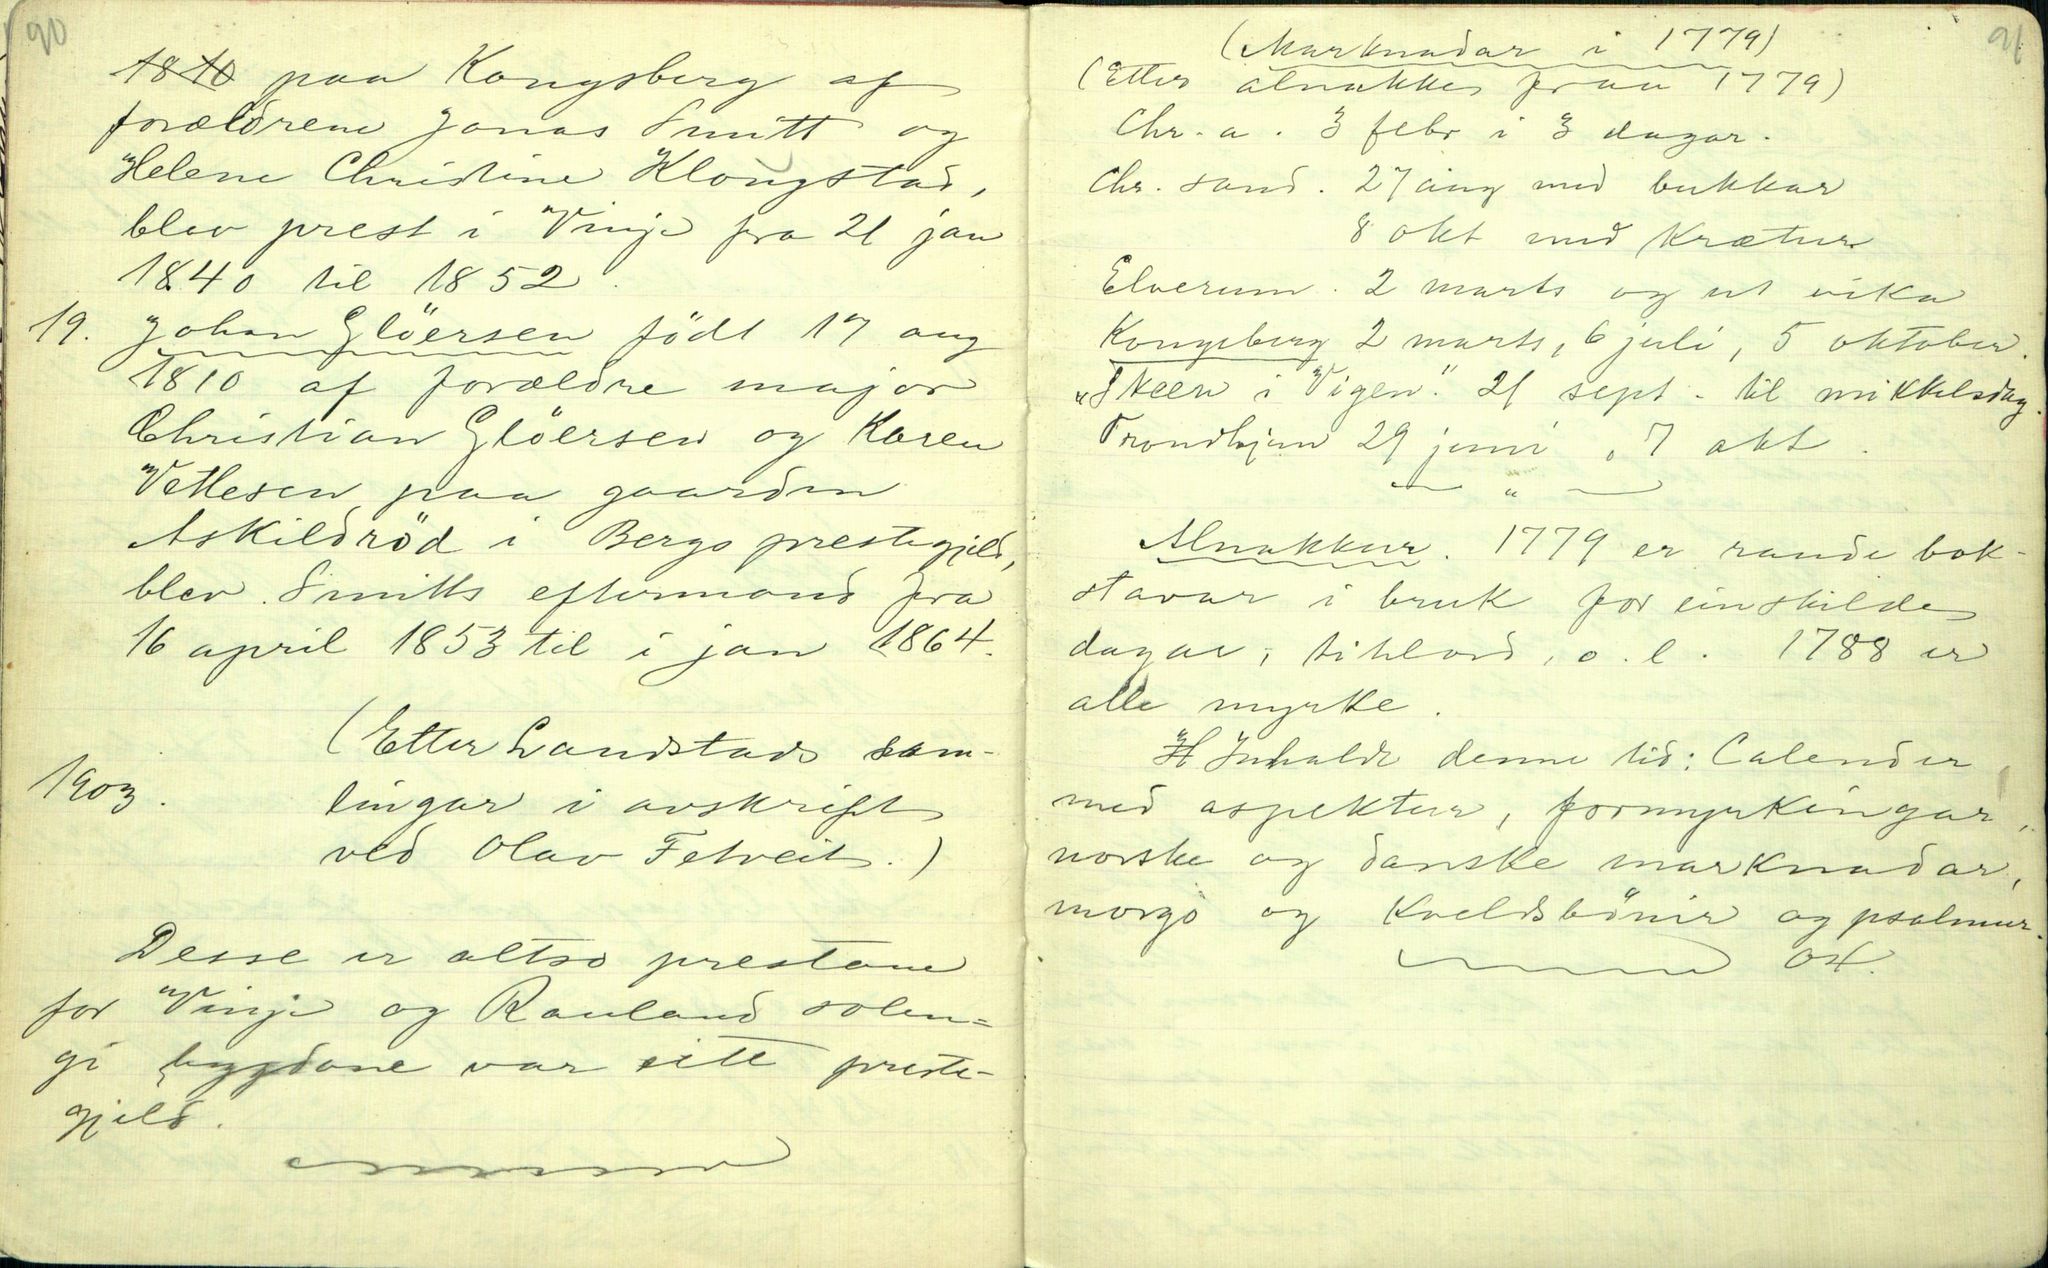 90
1810 paa Kongsberg af
forældrene Jonas Smitt og
Helene Christine Klongstad,
blev prest i Vinje fra 21 jan
1840 til 1852.
19. Johan Glöersen födt 17 aug
1810 af forældre major
Christian Glöersen og Karen
Vetlesen paa gaarden
Askildröd i Bergs prestegjeld,
blev Smitts eftermand fra
16 april 1853 til i jan 1864.
(Etter Landstads sam-
1903. lingar i avskrift
ved Olav Fetveit.)
Desse er altso prestane
for Vinje og Rauland solen=
gi bygdane var eitt preste-
gjeld.
91
(Marknadar i 1779)
(Etter alnakke fraa 1779)
Chr.a. 3 febr i 3 dagar.
Chr.sand. 27 aug med bukkar
8 okt med Krætur
Elverum. 2 marts og ut vika
Kongsberg 2 marts, 6 juli, 5 oktober.
"Skeen i Vigen". 21 sept. til mikkelsdag.
Trondhjem 29 juni, 7 okt.
— " —
Alnakkur. 1779 er raude bok-
stavar i bruk for einskilde
dagar, titlord, o.l. 1788 er
alle myrke.
H Inhalde denne tid: Calender
med aspektur, formyrkingar,
norske og danske marknadar,
morgo og Kveldsbönir og psalmur.
OH.